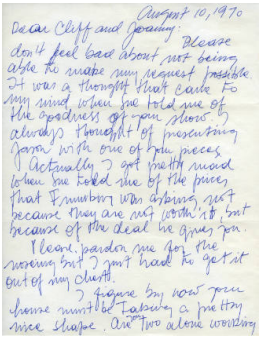 August 10, 1970
Dear Cliff and Joanny:
Please
don't feel bad about not being
able to make my request possible
It was a thought that came to
my mind when she told me of
the goodness of your show. I
always thought of presenting
Jason with one of your pieces
Actually I got pretty mad
when she told me of the prices
that Numbiru was asking not
because they are not worth it, but
because of the deal he gives you.
Please pardon me for the
nosing but I just had to get it
out of my chest.
I figure by now your
house must be taking a pretty
nice shape. Are two alone working